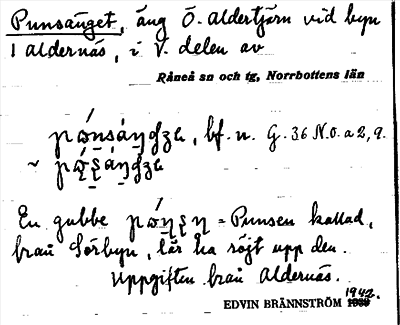 Punsänget, äng Ö. Aldertjärn vid byn
1 Aldernäs, i V. delen av
Råneå sn och tg, Norrbottens län
bf. n. G. 36 N.o. a 2, 9.
~
En gubbe = Punsen kallad,
från Sörbyn, lär ha röjt upp den.
Uppgiften från Aldernäs.
1942.
EDVIN BRÄNNSTRÖM